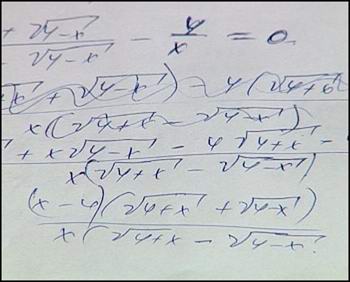 + √4-x
- √4-x - 4/x = 0
+ √4-x) - 4(√4+x
x(√4+x - √4-x)
+ x√4-x - 4√4+x -
x(√4+x - √4-x)
(x-4)(√4+x + √4-x)
x(√4+x - √4-x